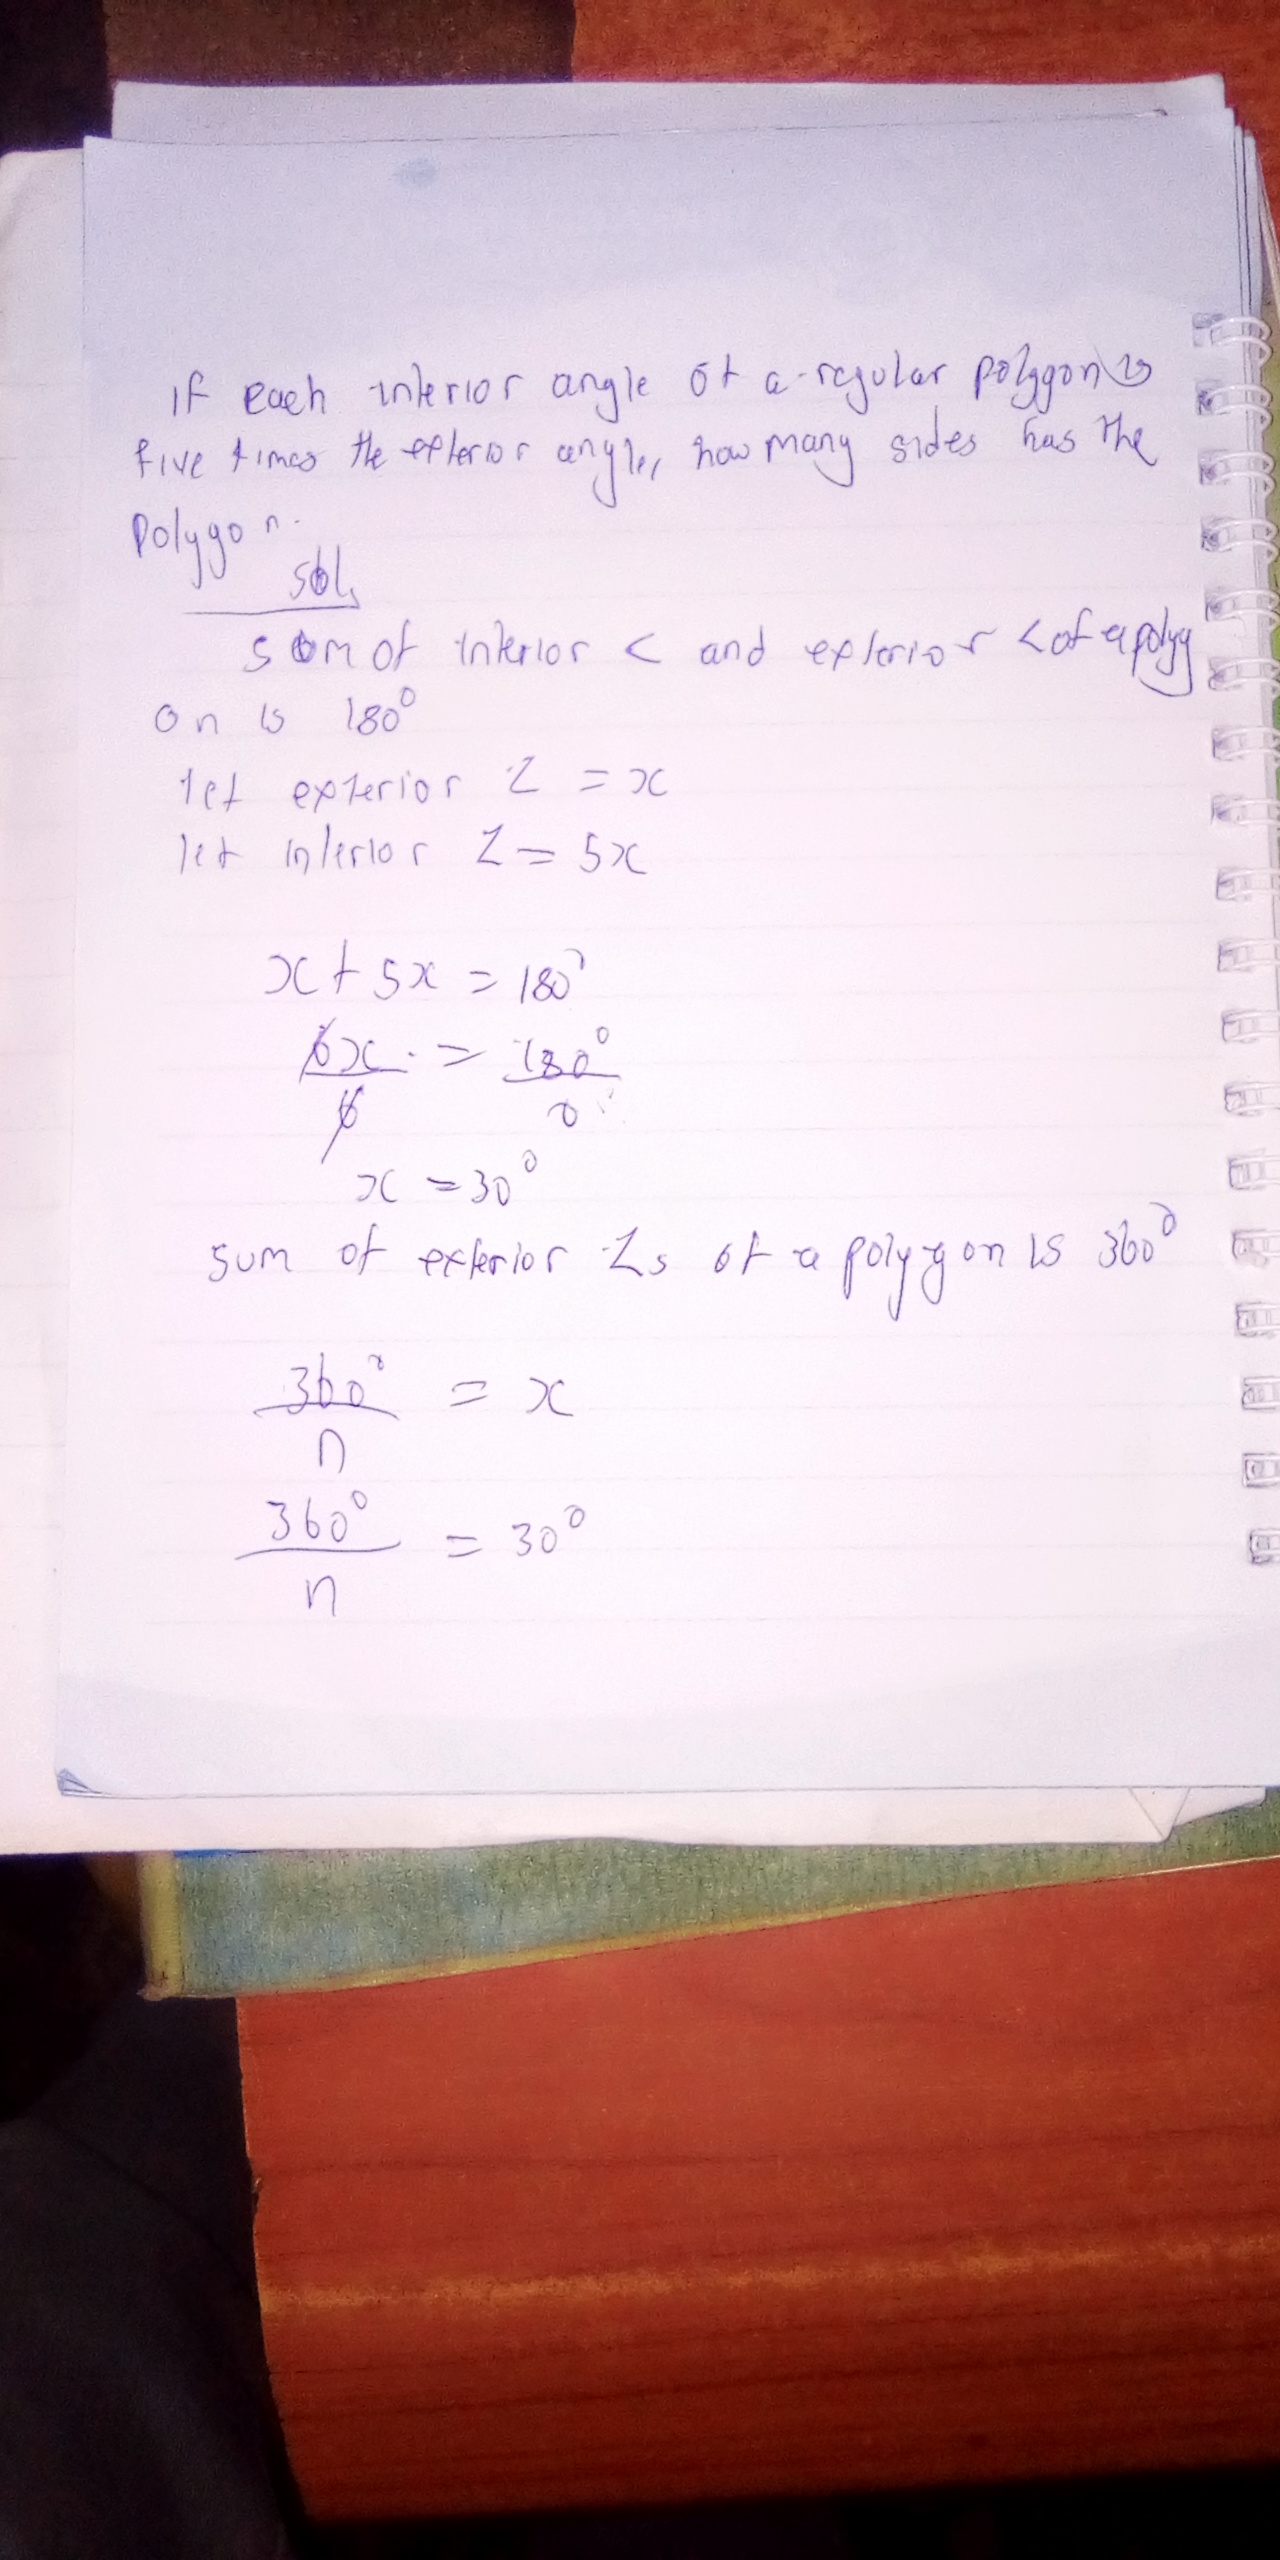 If each interior angle of a regular polygon is
five times the exterior angle, how many sides has the
polygon.
sol,
sum of interior < and exterior < of a polyg
on is 180°
let exterior ∠ = x
let interior ∠ = 5x
x + 5x = 180°
6x = 180°
6
x = 30°
sum of exterior ∠s of a polygon is 360°
360° = x
n
360° = 30°
n